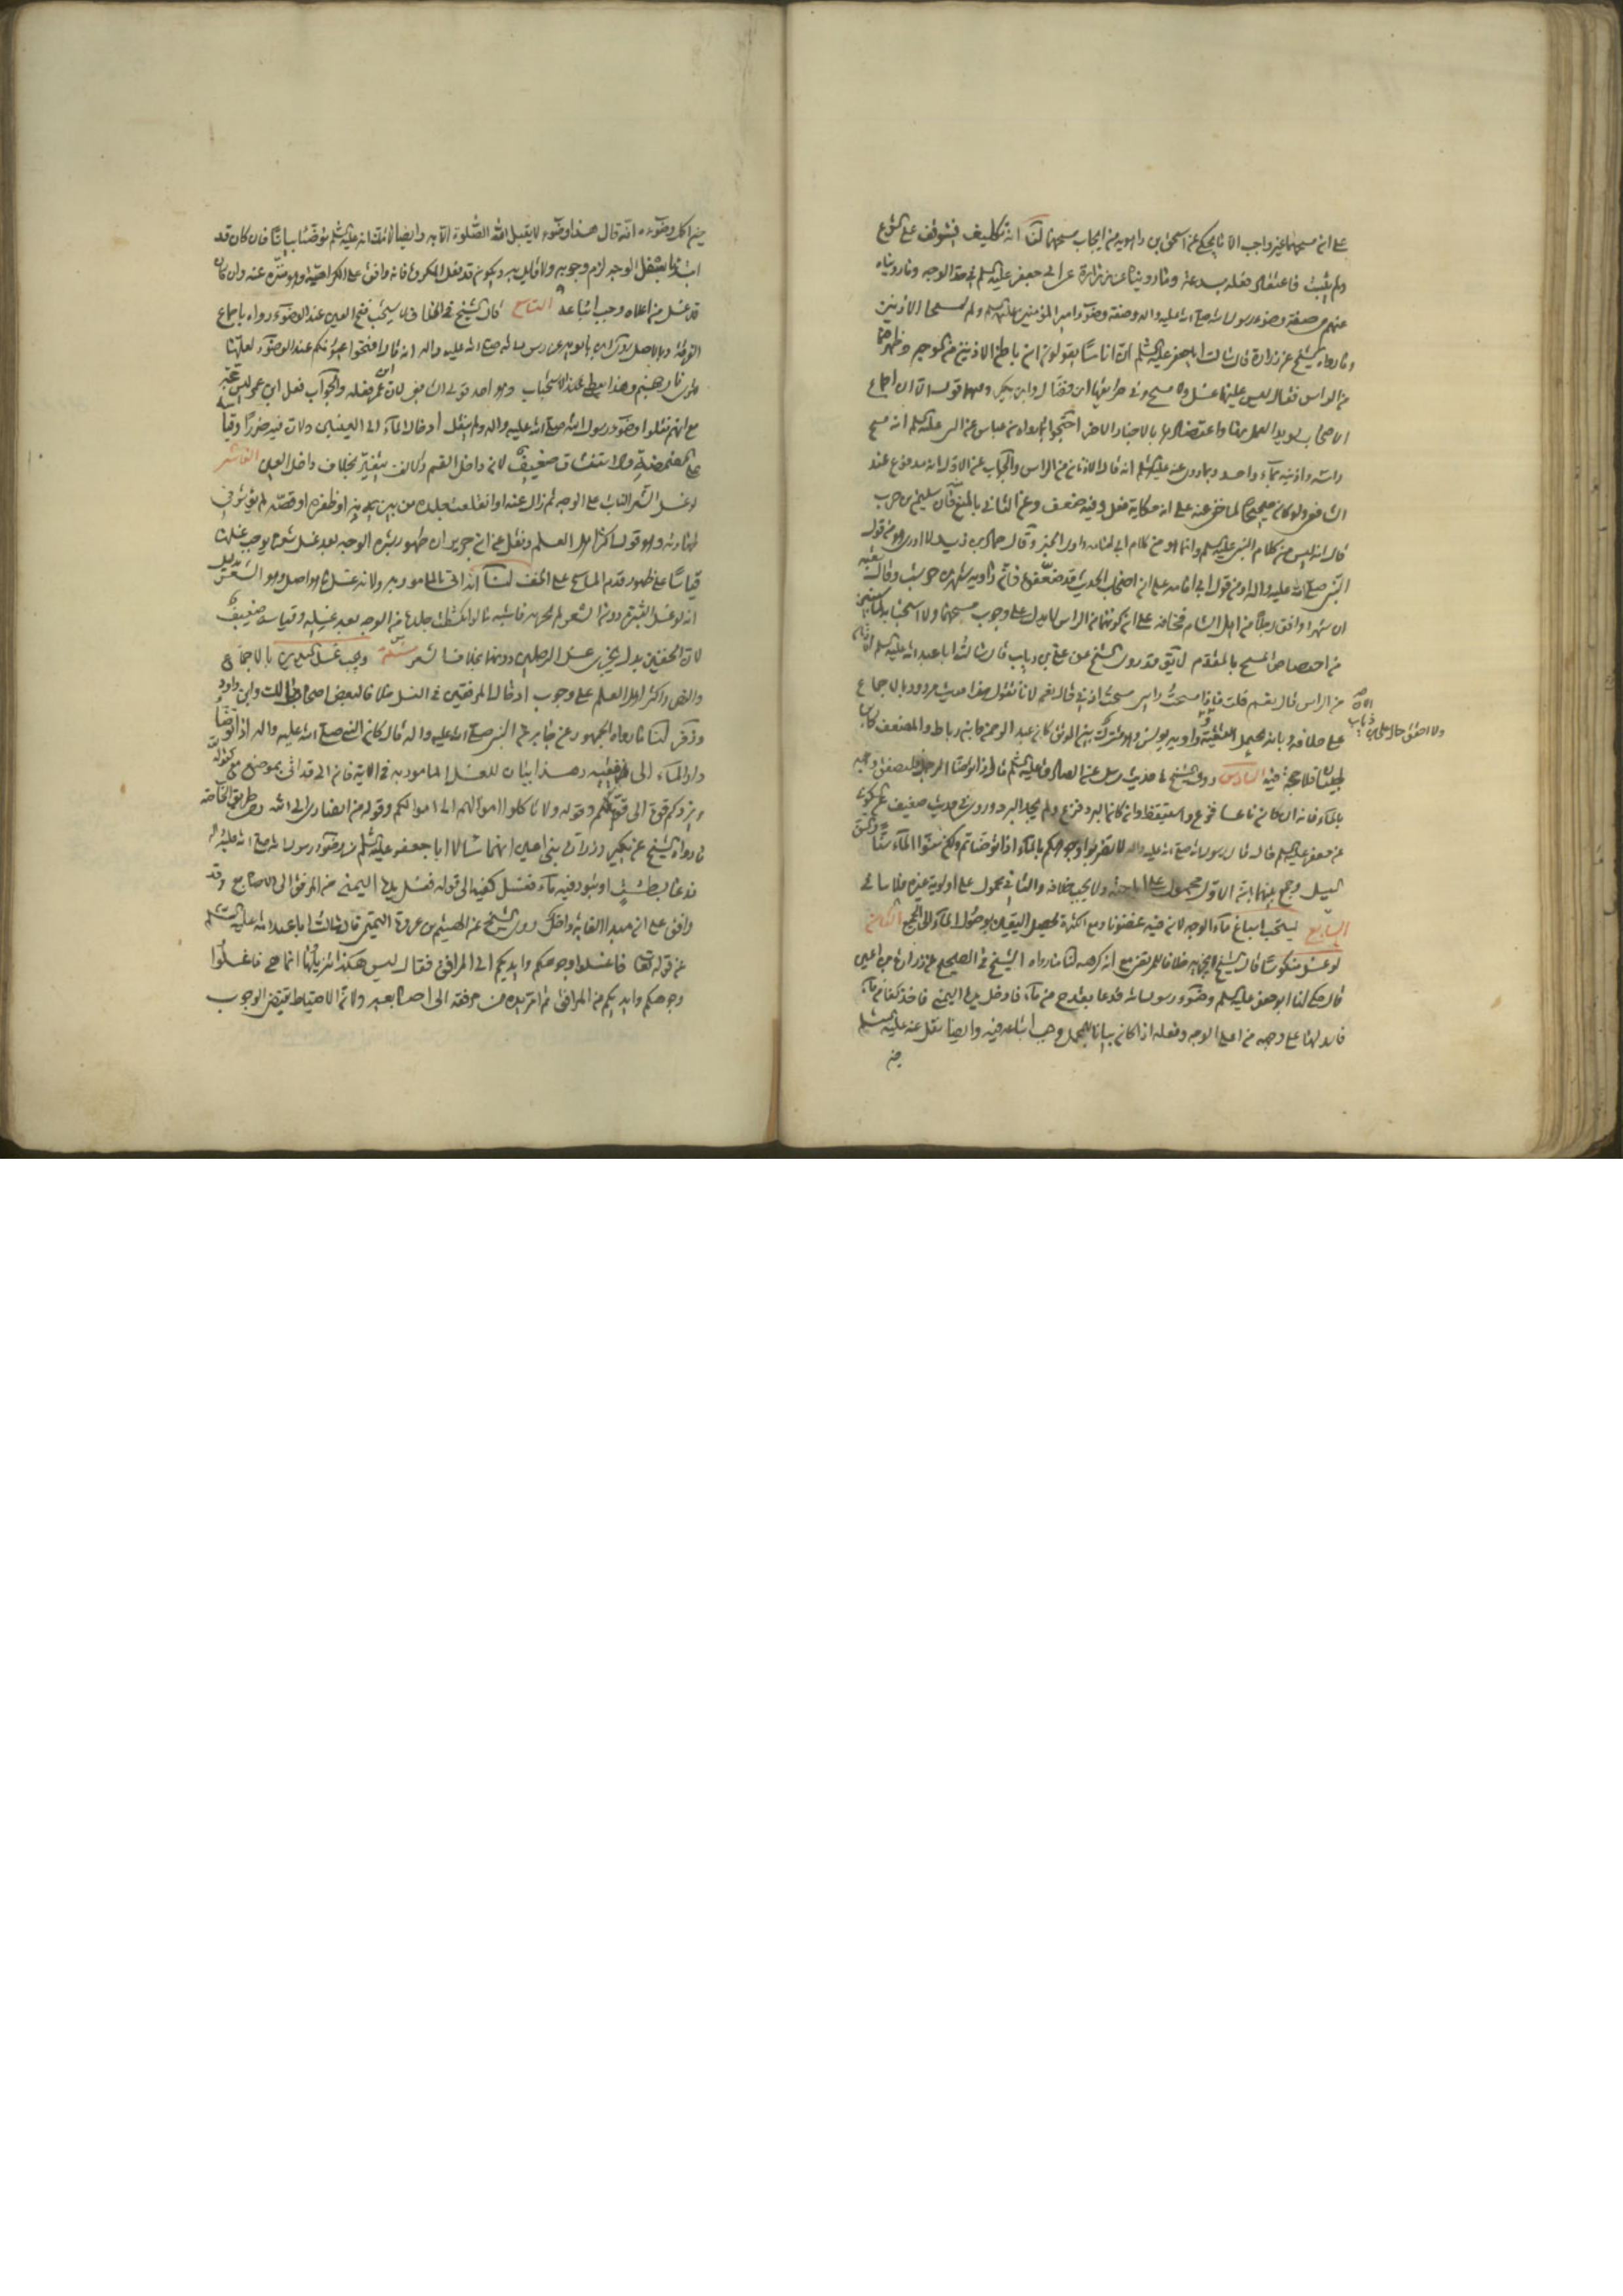 على ان مسحهما غير واجب الا ما يحكى عن اسحق بن راهويه من ايجاب مسحهما لنا انه تكليف فيتوقف على الشرع
ولم يثبت فاعتقاد فعله بدعة وما رويناه عن زرارة عن ابى جعفر عليه السلم فى حد الوجه وما رويناه
عنهم من صفة وضوء رسول الله صلى الله عليه واله وصفة وضوء امير المؤمنين عليه السلم ولم يمسحا الاذنين
وما رواه الشيخ عن زرارة قال سالت ابا جعفر عليه السلم ان اناسا يقولون ان باطن الاذنين من الوجه وظهرهما
من الراس فقال ليس عليهما غسل ولا مسح وفى طريقها ابن فضال وابن بكير وفيهما قول الا ان اجماع
الاصحاب يؤيد العمل بها واعتضادها بالاخبار الاخر احتجوا بما رواه ابن عباس عن النبى عليه السلم انه مسح
راسه واذنيه بماء واحد وبما روى عنه عليه السلم انه قال الاذنان من الراس والجواب عن الاول انه مدفوع عند
الشافعى ولو كان صحيحا لما خفى عنه على انه حكاية فعل وفيه ضعف وعن الثانى بالمنع فان سليمن بن حرب
قال انه ليس من كلام النبى عليه السلم وانما هو من كلام ابى امامه راوى الخبر وقال حماد بن زيد لا ادرى هو من قول
النبى صلى الله عليه واله او من قول ابى امامه على ان اصحاب الحديث قد ضعفوه فان راويه شهر بن حوشب وقال قتيبه
ان شهرا وافق رجلا من اهل الشام فخانه على ان كونهما من الراس لا يدل على وجوب مسحهما ولا استحبابه لما سنبين
من اختصاص المسح بالمقدم لا يق قد روى الشيخ عن على بن رياب قال سالت ابا عبد الله عليه السلم الاذنان
من الراس قال نعم قلت فاذا مسحت راسى مسحت اذنى قال نعم لانا نقول هذا حديث مردود بالاجماع
على خلافه وبانه يحمل التقية وراويه يونس وهو مشترك بين الموثق كابن عبد الرحمن وابن رباط والمضعف كابن
ظبيان فلا حجة فيه السادس روى الشيخ فى حديث مرسل عن الصادق عليه السلم قال اذا توضا الرجل فليصفق وجهه
بالماء فانه ان كان ناعسا فزع واستيقظ وان كان البرد فزع ولم يجد البرد وروى فى حديث ضعيف عن السكونى
عن جعفر عليه السلم قال قال رسول الله صلى الله عليه واله لا تضربوا وجوهكم بالماء اذا توضاتم ولكن شنوا الماء شنا
الشيخ وجمع بينهما بان الاول محمول على اباحته ولا يجب خلافه والثانى محمول على اولوية غيره فلا منافى
السابع يستحب اسباغ ماء الوجه لان فيه غضونا ومع الكثرة يحصل اليقين بوصول الماء الى الجميع الثامن
لو غسل منكوسا قال الشيخ لا يجزيه خلافا للمرتضى مع انه كرهه لنا ما رواه الشيخ فى الصحيح عن زرارة بن اعين
قال حكى لنا ابو جعفر عليه السلم وضوء رسول الله فدعا بقدح من ماء فادخل يده اليمنى فاخذ كفا من ماء
فاسدلها على وجهه من اعلى الوجه وفعله اذا كان بيانا للمجمل وجب اتباعه فيه وايضا نقل عنه عليه السلم
حين
حين اكمل وضوءه انه قال هذا وضوء لا يقبل الله الصلوة الا به وايضا لا شك انه عليه السلم توضا بيانا فان كان قد
ابتدا باسفل الوجه لزم وجوبه ولا قايل به ويكون قد فعل المكروه فانه وافق على الكراهية وهو منزه عنه وان كان
قد غسل من اعلاه وجب اتباعه التاسع قال الشيخ فى الخلاف لا يستحب فتح العين عند الوضوء رواه باجماع
الفرقة وبالاصل روى ابن بابويه عن رسول الله صلى الله عليه واله انه قال افتحوا عيونكم عند الوضوء لعلها
لا ترى نار جهنم وهذا يعطى عنده الاستحباب وهو احد قولى الشافعى لان ابن عمر فعله والجواب فعل ابن عمر ليس حجة
مع انهم نقلوا وضوء رسول الله صلى الله عليه واله ولم ينقل ادخال الماء الى العينين ولان فيه ضررا وقياسه
على المضمضة والاستنشاق ضعيف لان داخل الفم والانف يتغير بخلاف داخل العين العاشر
لو غسل الشعر النابت على الوجه ثم زال عنه او انقلعت جلدة من يديه او ظفره او قصه لم يؤثر فى
طهارته وهو قول اكثر اهل العلم ونقل عن ابن جرير ان ظهور بشرة الوجه بعد غسل شعرها يوجب غسلها
قياسا على ظهور قدم الماسح على الخف لنا انه اتى بالمامور به ولانه غسل ما هو اصل وهو الشعر بدليل
انه لو غسل البشرة دون الشعر لم يجزه فاشبه ما لو انكشطت جلدة من الوجه بعد غسله وقياسه ضعيف
لان الخفين بدل يجزى غسل الرجلين دونهما بخلاف الشعر مسئلة ويجب غسل اليدين بالاجماع
والنص واكثر اهل العلم على وجوب ادخال المرفقين فى الغسل خلافا لبعض اصحاب مالك وابن داود
وزفر لنا ما رواه الجمهور عن جابر عن النبى صلى الله عليه واله قال كان النبى صلى الله عليه واله اذا توضا
دار الماء الى مرفقيه وهذا بيان للغسل المامور به فى الاية فان الى قد اتى بموضع مع كقوله
ويزدكم قوة الى قوتكم وقوله ولا تاكلوا اموالهم الى اموالكم وقوله من انصارى الى الله ومن طريق الخاصة
ما رواه الشيخ عن بكير وزرارة بنى اعين انهما سالا ابا جعفر عليه السلم عن وضوء رسول الله صلى الله عليه واله
فدعا بطشت او بتور فيه ماء فغسل كفيه الى قوله فغسل يده اليمنى من المرفق الى الاصابع وقد
وافق على انه مبدا الغاية داخل روى الشيخ عن الهيثم بن عروة التميمى قال سالت ابا عبد الله عليه السلم
عن قوله تعا فاغسلوا وجوهكم وايديكم الى المرافق فقال ليس هكذا تنزيلها انما هى فاغسلوا
وجوهكم وايديكم من المرافق ثم امر يده من مرفقه الى اصابعه ولان الاحتياط يقتضى الوجوب